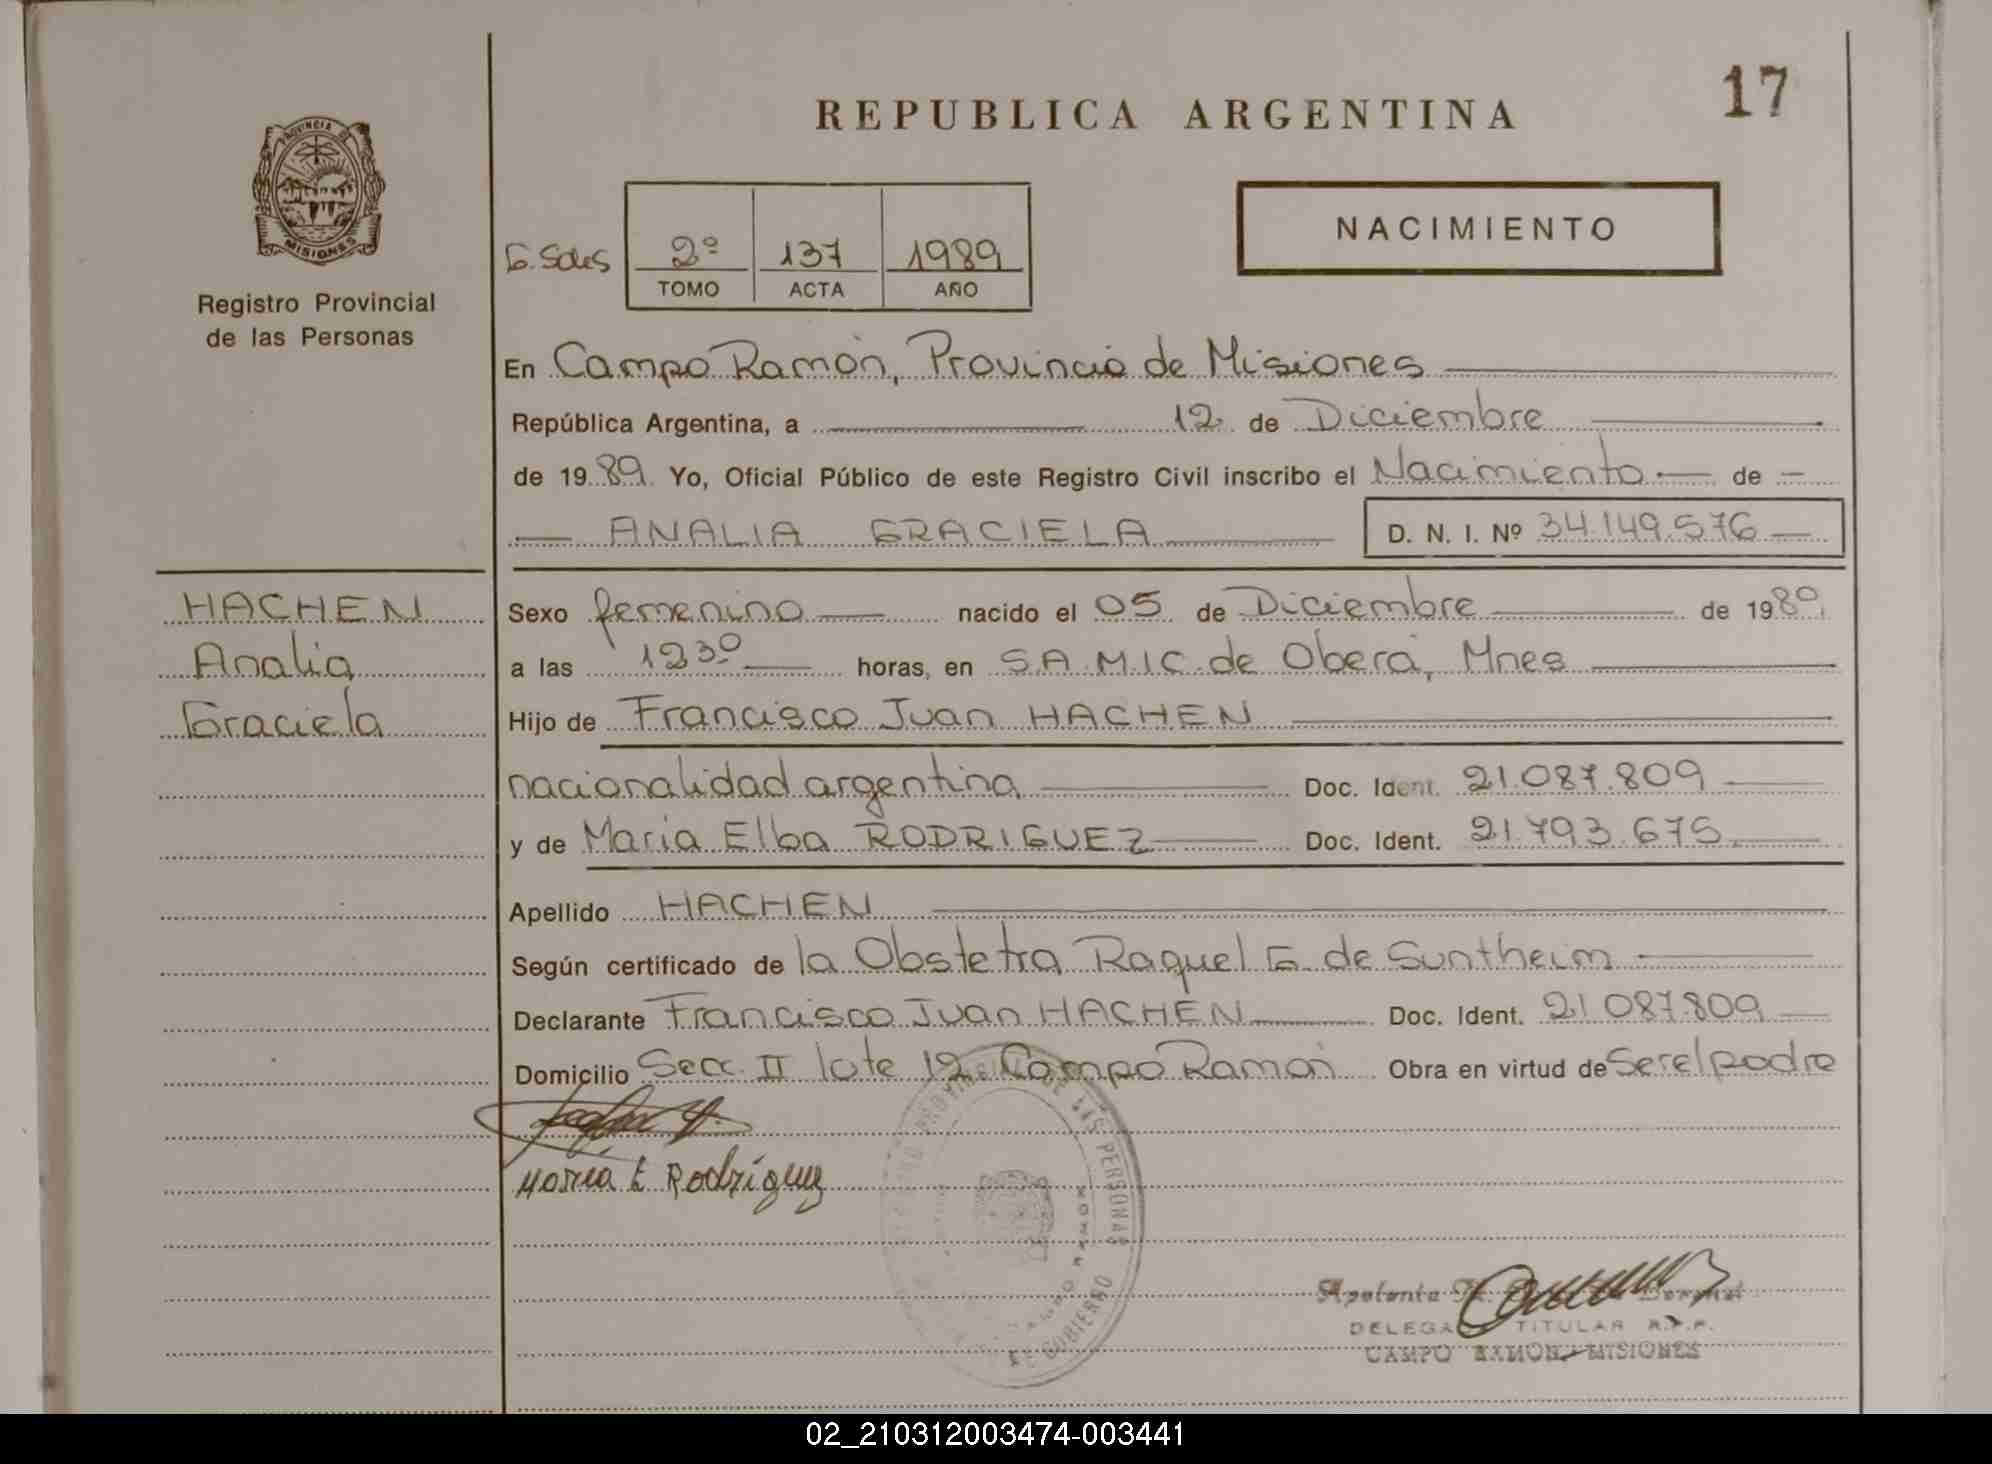 REPUBLICA ARGENTINA
17
PROVINCIA DE
MISIONES
Registro Provincial
de las Personas
2º 137 1989
TOMO ACTA AÑO
NACIMIENTO
En Campo Ramón, Provincia de Misiones
República Argentina, a 12 de Diciembre
de 1989 Yo, Oficial Público de este Registro Civil inscribo el Nacimiento de
ANALIA GRACIELA D. N. I. Nº 34.149.576
HACHEN
Analia
Graciela
Sexo femenino nacido el 05 de Diciembre de 1989
a las 1230 horas, en S.A.M.I.C. de Oberá, Mnes
Hijo de Francisco Juan HACHEN
nacionalidad argentina Doc. Ident. 21.087.809
y de Maria Elba RODRIGUEZ Doc. Ident. 21.793.675
Apellido HACHEN
Según certificado de la Obstetra Raquel G. de Suntheim
Declarante Francisco Juan HACHEN Doc. Ident. 21.087.809
Domicilio Secc. II lote 12 Campo Ramón Obra en virtud de Ser el padre
Maria E Rodriguez
DE LAS PERSONAS
CAMPO RAMON
DE GOBIERNO
TITULAR R.P.P.
CAMPO RAMON-MISIONES
02_210312003474-003441